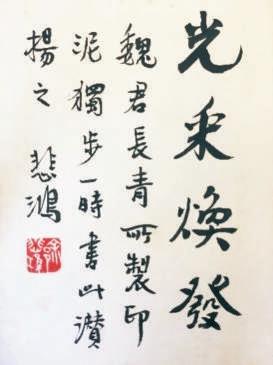 光采煥發
魏君長青所製印
泥獨步一時書此讚
揚之 悲鴻